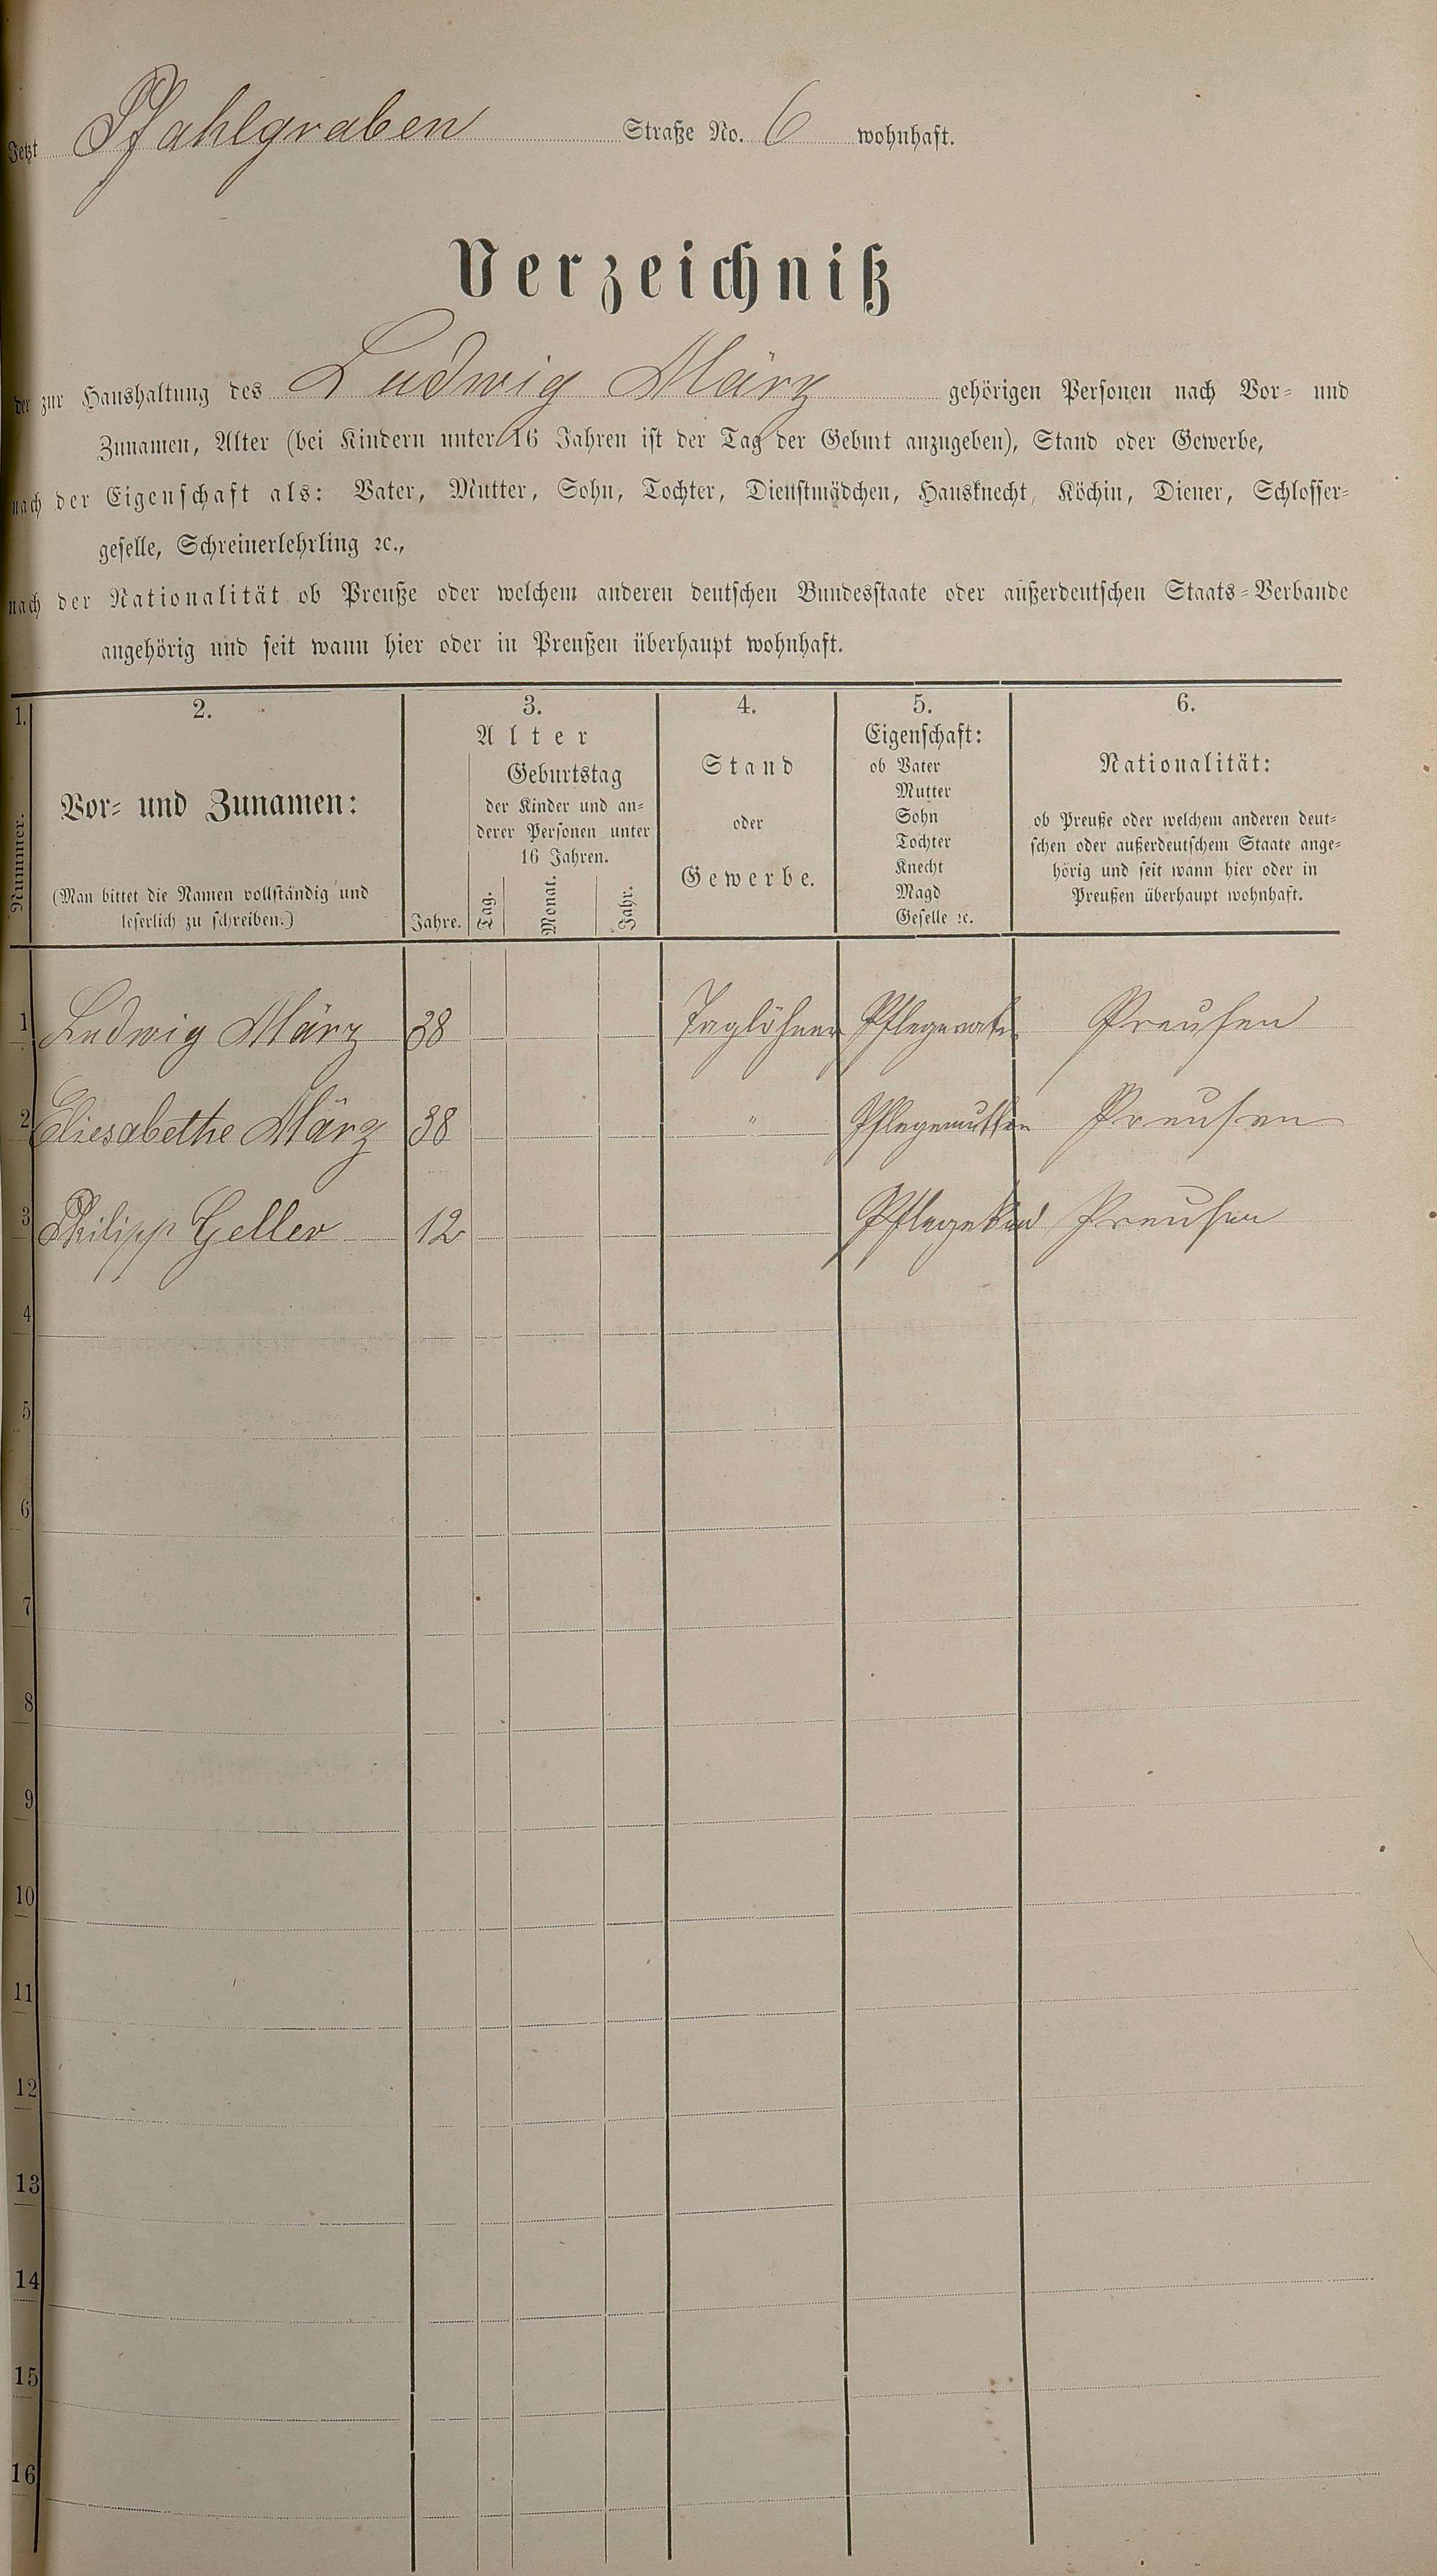 Jetzt Pfahlgraben Straße No. 6 wohnhaft.
Verzeichniß
der zur Haushaltung des Ludwig März gehörigen Personen nach Vor- und
Zunamen, Alter (bei Kindern unter 16 Jahren ist der Tag der Geburt anzugeben), Stand oder Gewerbe,
nach der Eigenschaft als: Vater, Mutter, Sohn, Tochter, Dienstmädchen, Hausknecht, Köchin, Diener, Schlosser-
geselle, Schreinerlehrling ꝛc.,
nach der Nationalität ob Preuße oder welchem anderen deutschen Bundesstaate oder außerdeutschen Staats-Verbande
angehörig und seit wann hier oder in Preußen überhaupt wohnhaft.
1. 2. 3. 4. 5. 6.
Nummer.
Vor- und Zunamen:
(Man bittet die Namen vollständig und
leserlich zu schreiben.)
Alter
Jahre.
Geburtstag
der Kinder und an-
derer Personen unter
16 Jahren.
Tag. Monat. Jahr.
Stand
oder
Gewerbe.
Eigenschaft:
ob Vater
Mutter
Sohn
Tochter
Knecht
Magd
Geselle ꝛc.
Nationalität:
ob Preuße oder welchem anderen deut-
schen oder außerdeutschem Staate ange-
hörig und seit wann hier oder in
Preußen überhaupt wohnhaft.
1 Ludwig März 38 Taglöhner Pflegevater Preusen
2 Eliesabethe März 38 " Pflegemutter Preusen
3 Philipp Geller 12 Pflegekind Preusen
4
5
6
7
8
9
10
11
12
13
14
15
16